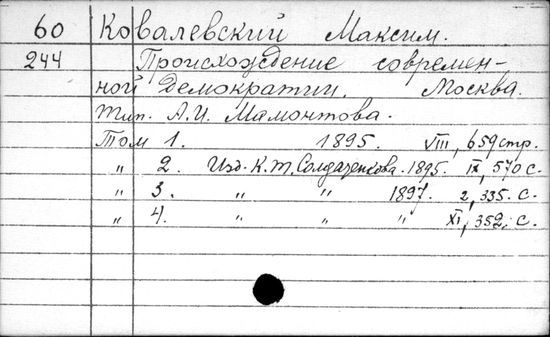 60 Ковалевский Максим.
244 Происхождение современ-
ной демократии, Москва.
Тип. А.И. Мамонтова.
Том 1. 1895. VIII, 659 стр.
" 2. Изд. К.Т. Солдатенкова. 1895. IX, 570 с.
" 3. " " 1897. 2, 335. с.
" 4. " " " XI, 352, с.